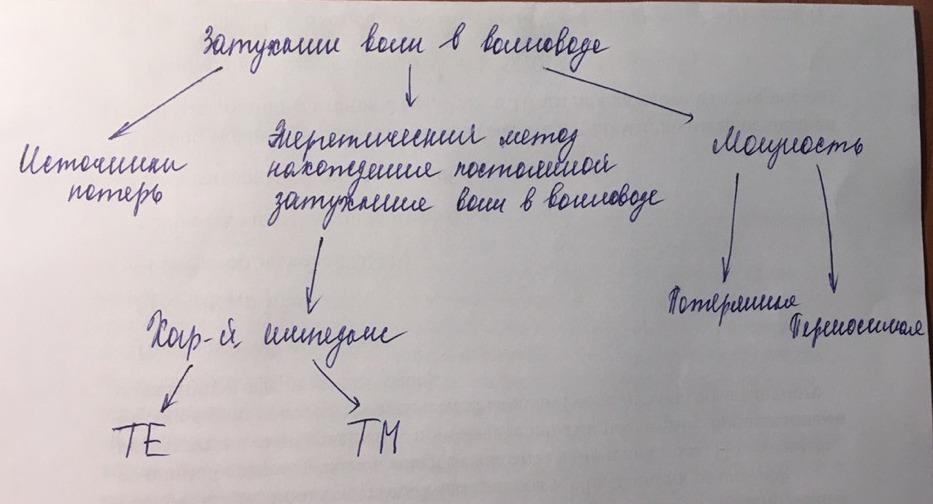 Затухание волн в волноводе
Источники
потерь
Энергетический метод
нахождения постоянной
затухания волн в волноводе
Мощность
Потерянная
Переносимая
Хар-й, импеданс
TE
TM